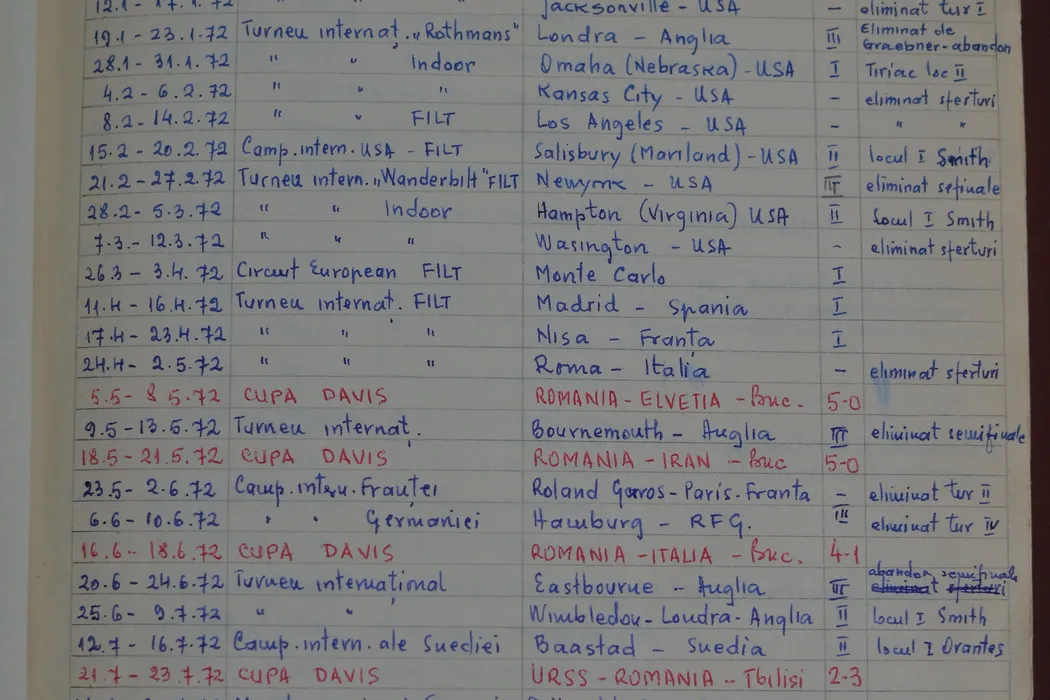 12.1 - 17.1.72 Jacksonville - USA - eliminat tur I
19.1 - 23.1.72 Turneu internaț. „Rothmans" Londra - Anglia III Eliminat de Graebner-abandon
28.1 - 31.1.72 " " Indoor Omaha (Nebraska) - USA I Tiriac loc II
4.2 - 6.2.72 " " " Kansas City - USA - eliminat sferturi
8.2 - 14.2.72 " " FILT Los Angeles - USA - " "
15.2 - 20.2.72 Camp. intern. USA - FILT Salisbury (Mariland) - USA II locul I Smith
21.2 - 27.2.72 Turneu intern. „Wanderbilt" FILT Newyork - USA III eliminat sefinale
28.2 - 5.3.72 " " Indoor Hampton (Virginia) USA II Locul I Smith
7.3. - 12.3.72 " " " Wasington - USA - eliminat sferturi
26.3 - 3.4.72 Circuit European FILT Monte Carlo I
11.4 - 16.4.72 Turneu internaț. FILT Madrid - Spania I
17.4 - 23.4.72 " " " Nisa - Franta I
24.4 - 2.5.72 " " " Roma - Italia - eliminat sferturi
5.5 - 8 5.72 CUPA DAVIS ROMANIA - ELVETIA - Buc. 5-0
9.5 - 13.5.72 Turneu internaț. Bournemouth - Anglia III eliminat semifinale
18.5 - 21.5.72 CUPA DAVIS ROMANIA - IRAN - Buc 5-0
23.5 - 2.6.72 Camp. intern. Franței Roland Garos - Paris - Franta - eliminat tur II
6.6 - 10.6.72 " " Germaniei Hamburg - RFG. III eliminat tur IV
16.6 - 18.6.72 CUPA DAVIS ROMANIA - ITALIA - Buc. 4-1
20.6 - 24.6.72 Turneu internațional Eastbourne - Anglia III abandon semifinale eliminat sferturi
25.6 - 9.7.72 " " Wimbledon - Londra - Anglia II locul I Smith
12.7 - 16.7.72 Camp. intern. ale Suediei Baastad - Suedia II locul I Orantes
21.7 - 23.7.72 CUPA DAVIS URSS - ROMANIA - Tbilisi 2-3